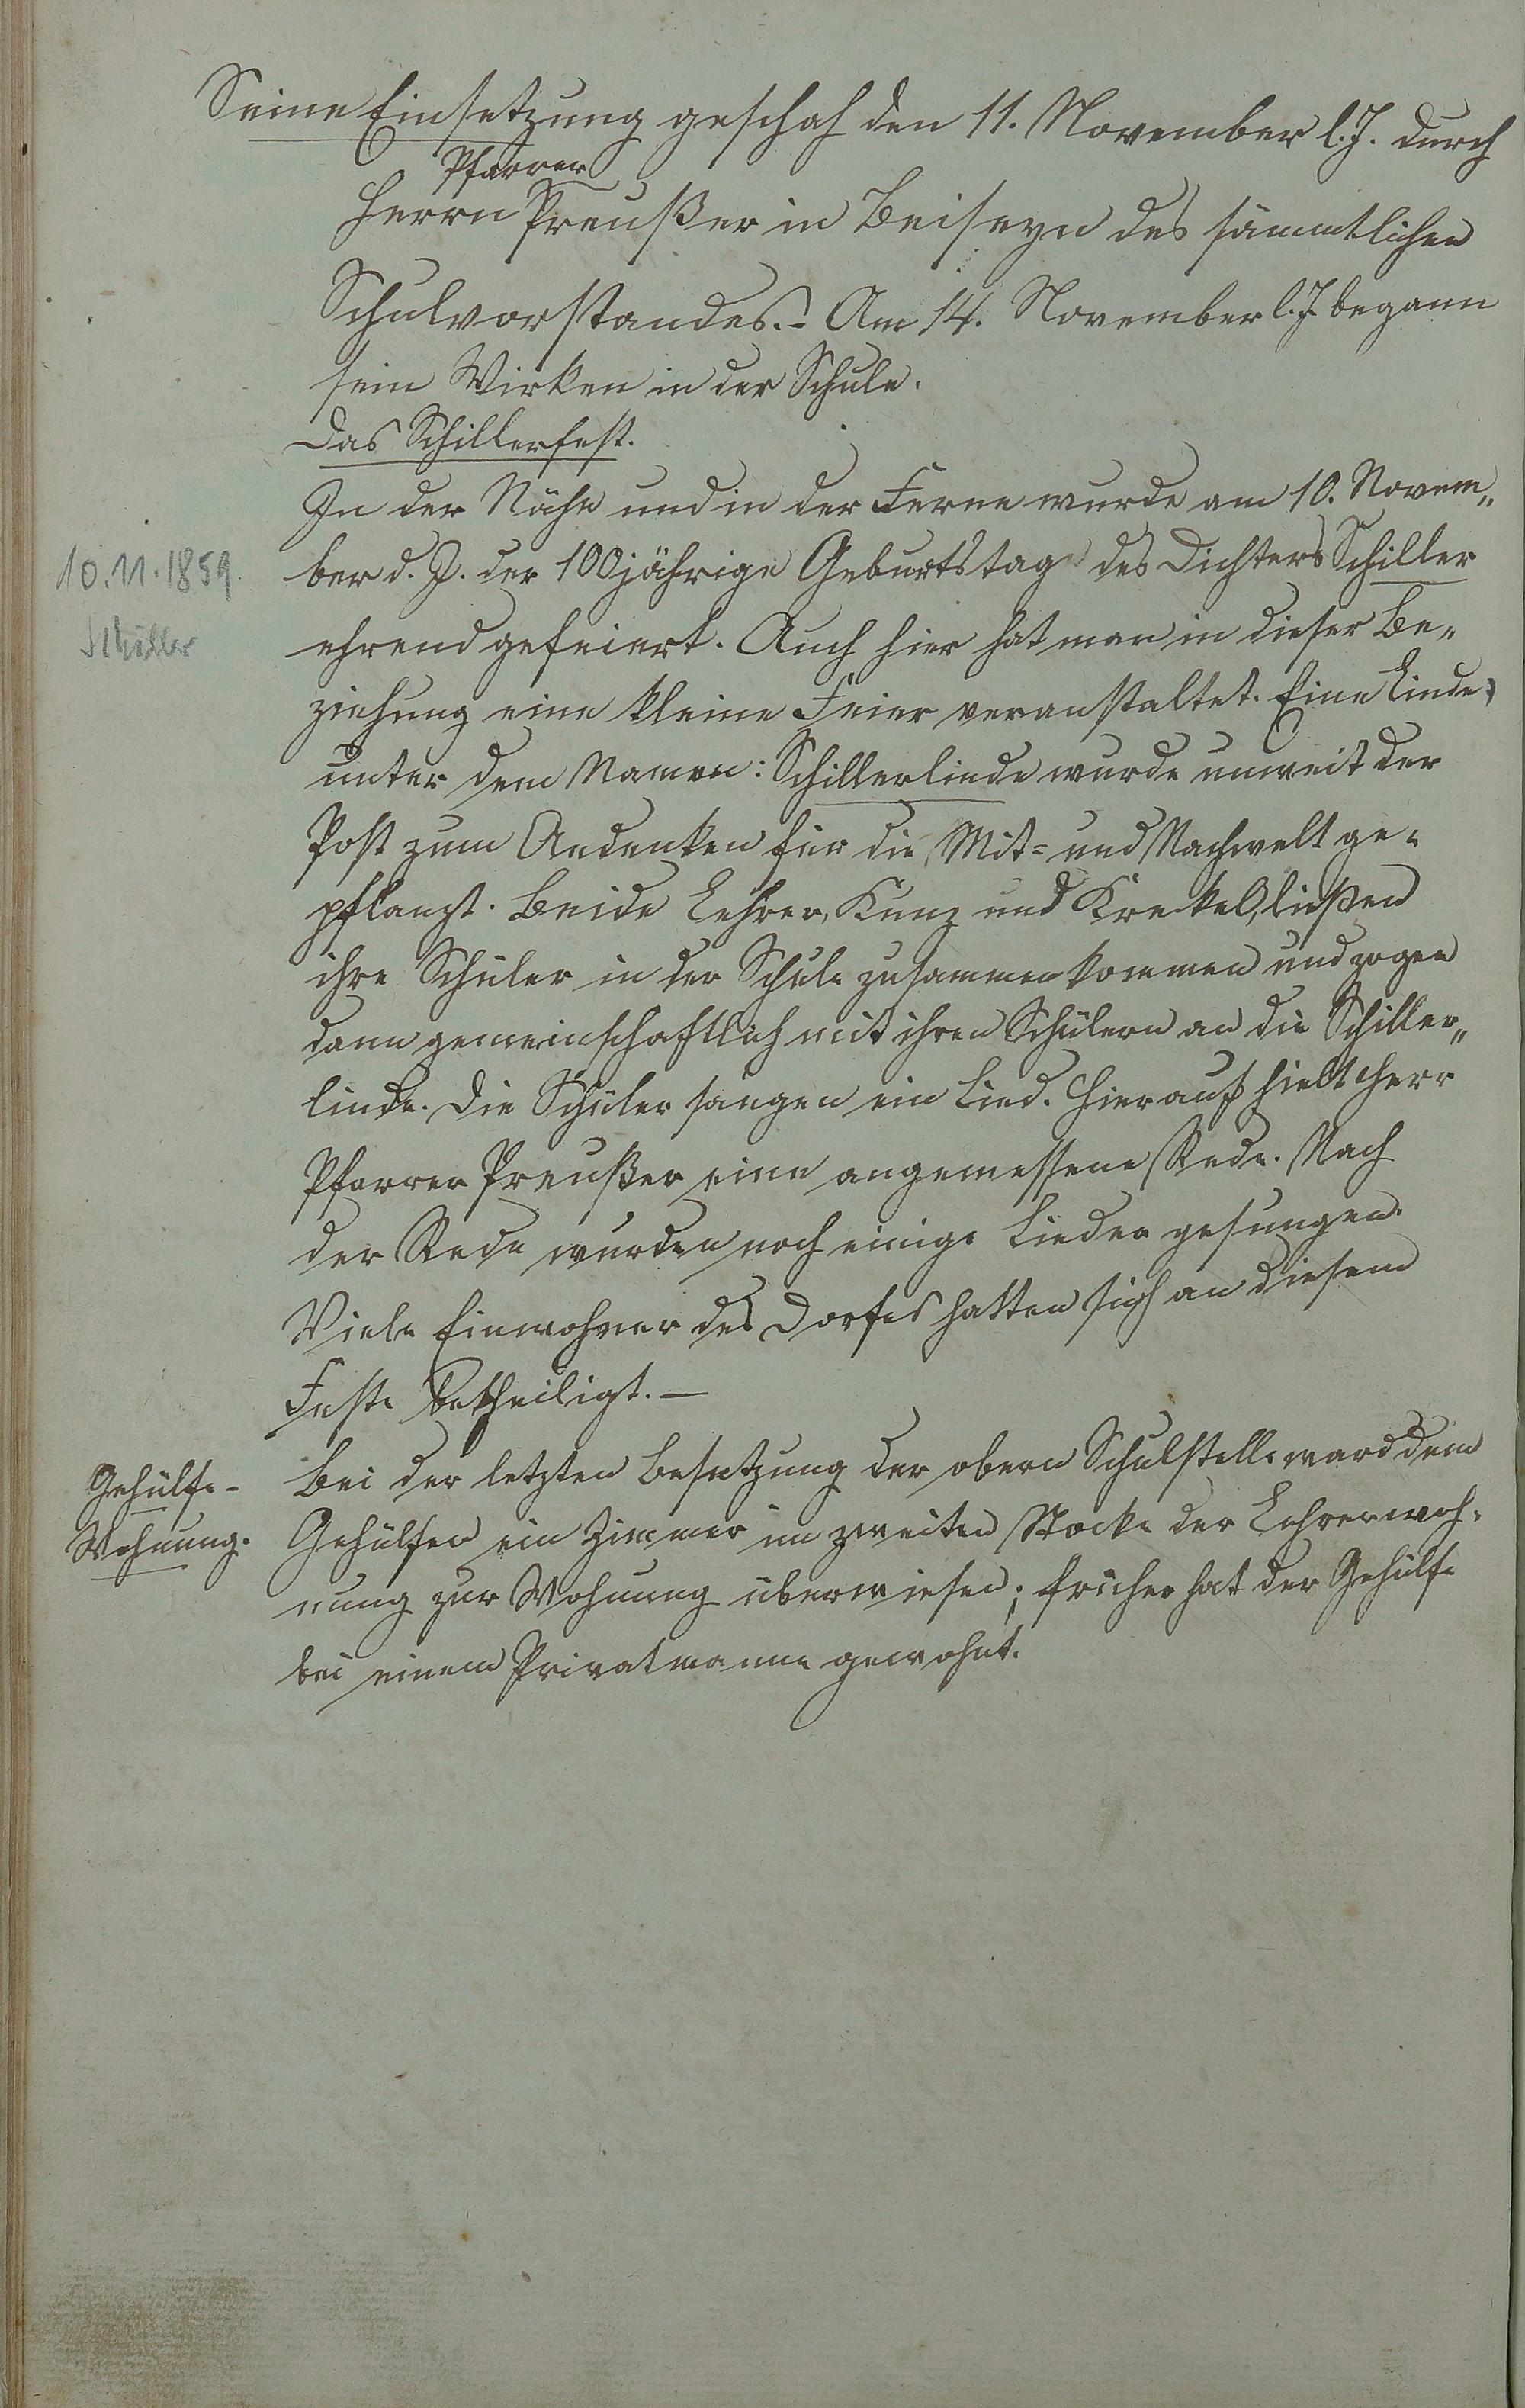 Seine Einsetzung geschah den 11. November l. J. durch
Pfarrer
Herrn Preußer in Beiseyn des sämmtlichen
Schulvorstandes. - Am 14. November l. J. begann
sein Wirken in der Schule.
Das Schillerfest.
In der Nähe und in der Ferne wurde am 10. Novem„
10.11.1859.
Schiller
ber d. J. der 100jährige Geburtstag des Dichters Schiller
ehrend gefeiert. Auch hier hat man in dieser Be„
ziehung eine kleine Feier veranstaltet. Eine Linde,
unter dem Namen: Schillerlinde wurde unweit der
Post zum Andenken für die Mit= und Nachwelt ge„
pflanzt. Beide Lehrer, Kunz und Krekel, ließen
ihre Schüler in der Schule zusammen kommen und zogen
dann gemeinschaftlich mit ihren Schülern an die Schiller„
linde. Die Schüler sangen ein Lied. Hierauf hielt Herr
Pfarrer Preußer eine angemessene Rede. Nach
der Rede wurden noch einige Lieder gesungen.
Viele Einwohner des Dorfes hatten sich an diesem
Feste betheiligt. —
Gehülfe-
Wohnung.
Bei der letzten Besetzung der obern Schulstelle ward dem
Gehülfen ein Zimmer im zweiten Stocke der Lehrerwoh„
nung zur Wohnung überwiesen; früher hat der Gehülfe
bei einem Privatmanne gewohnt.